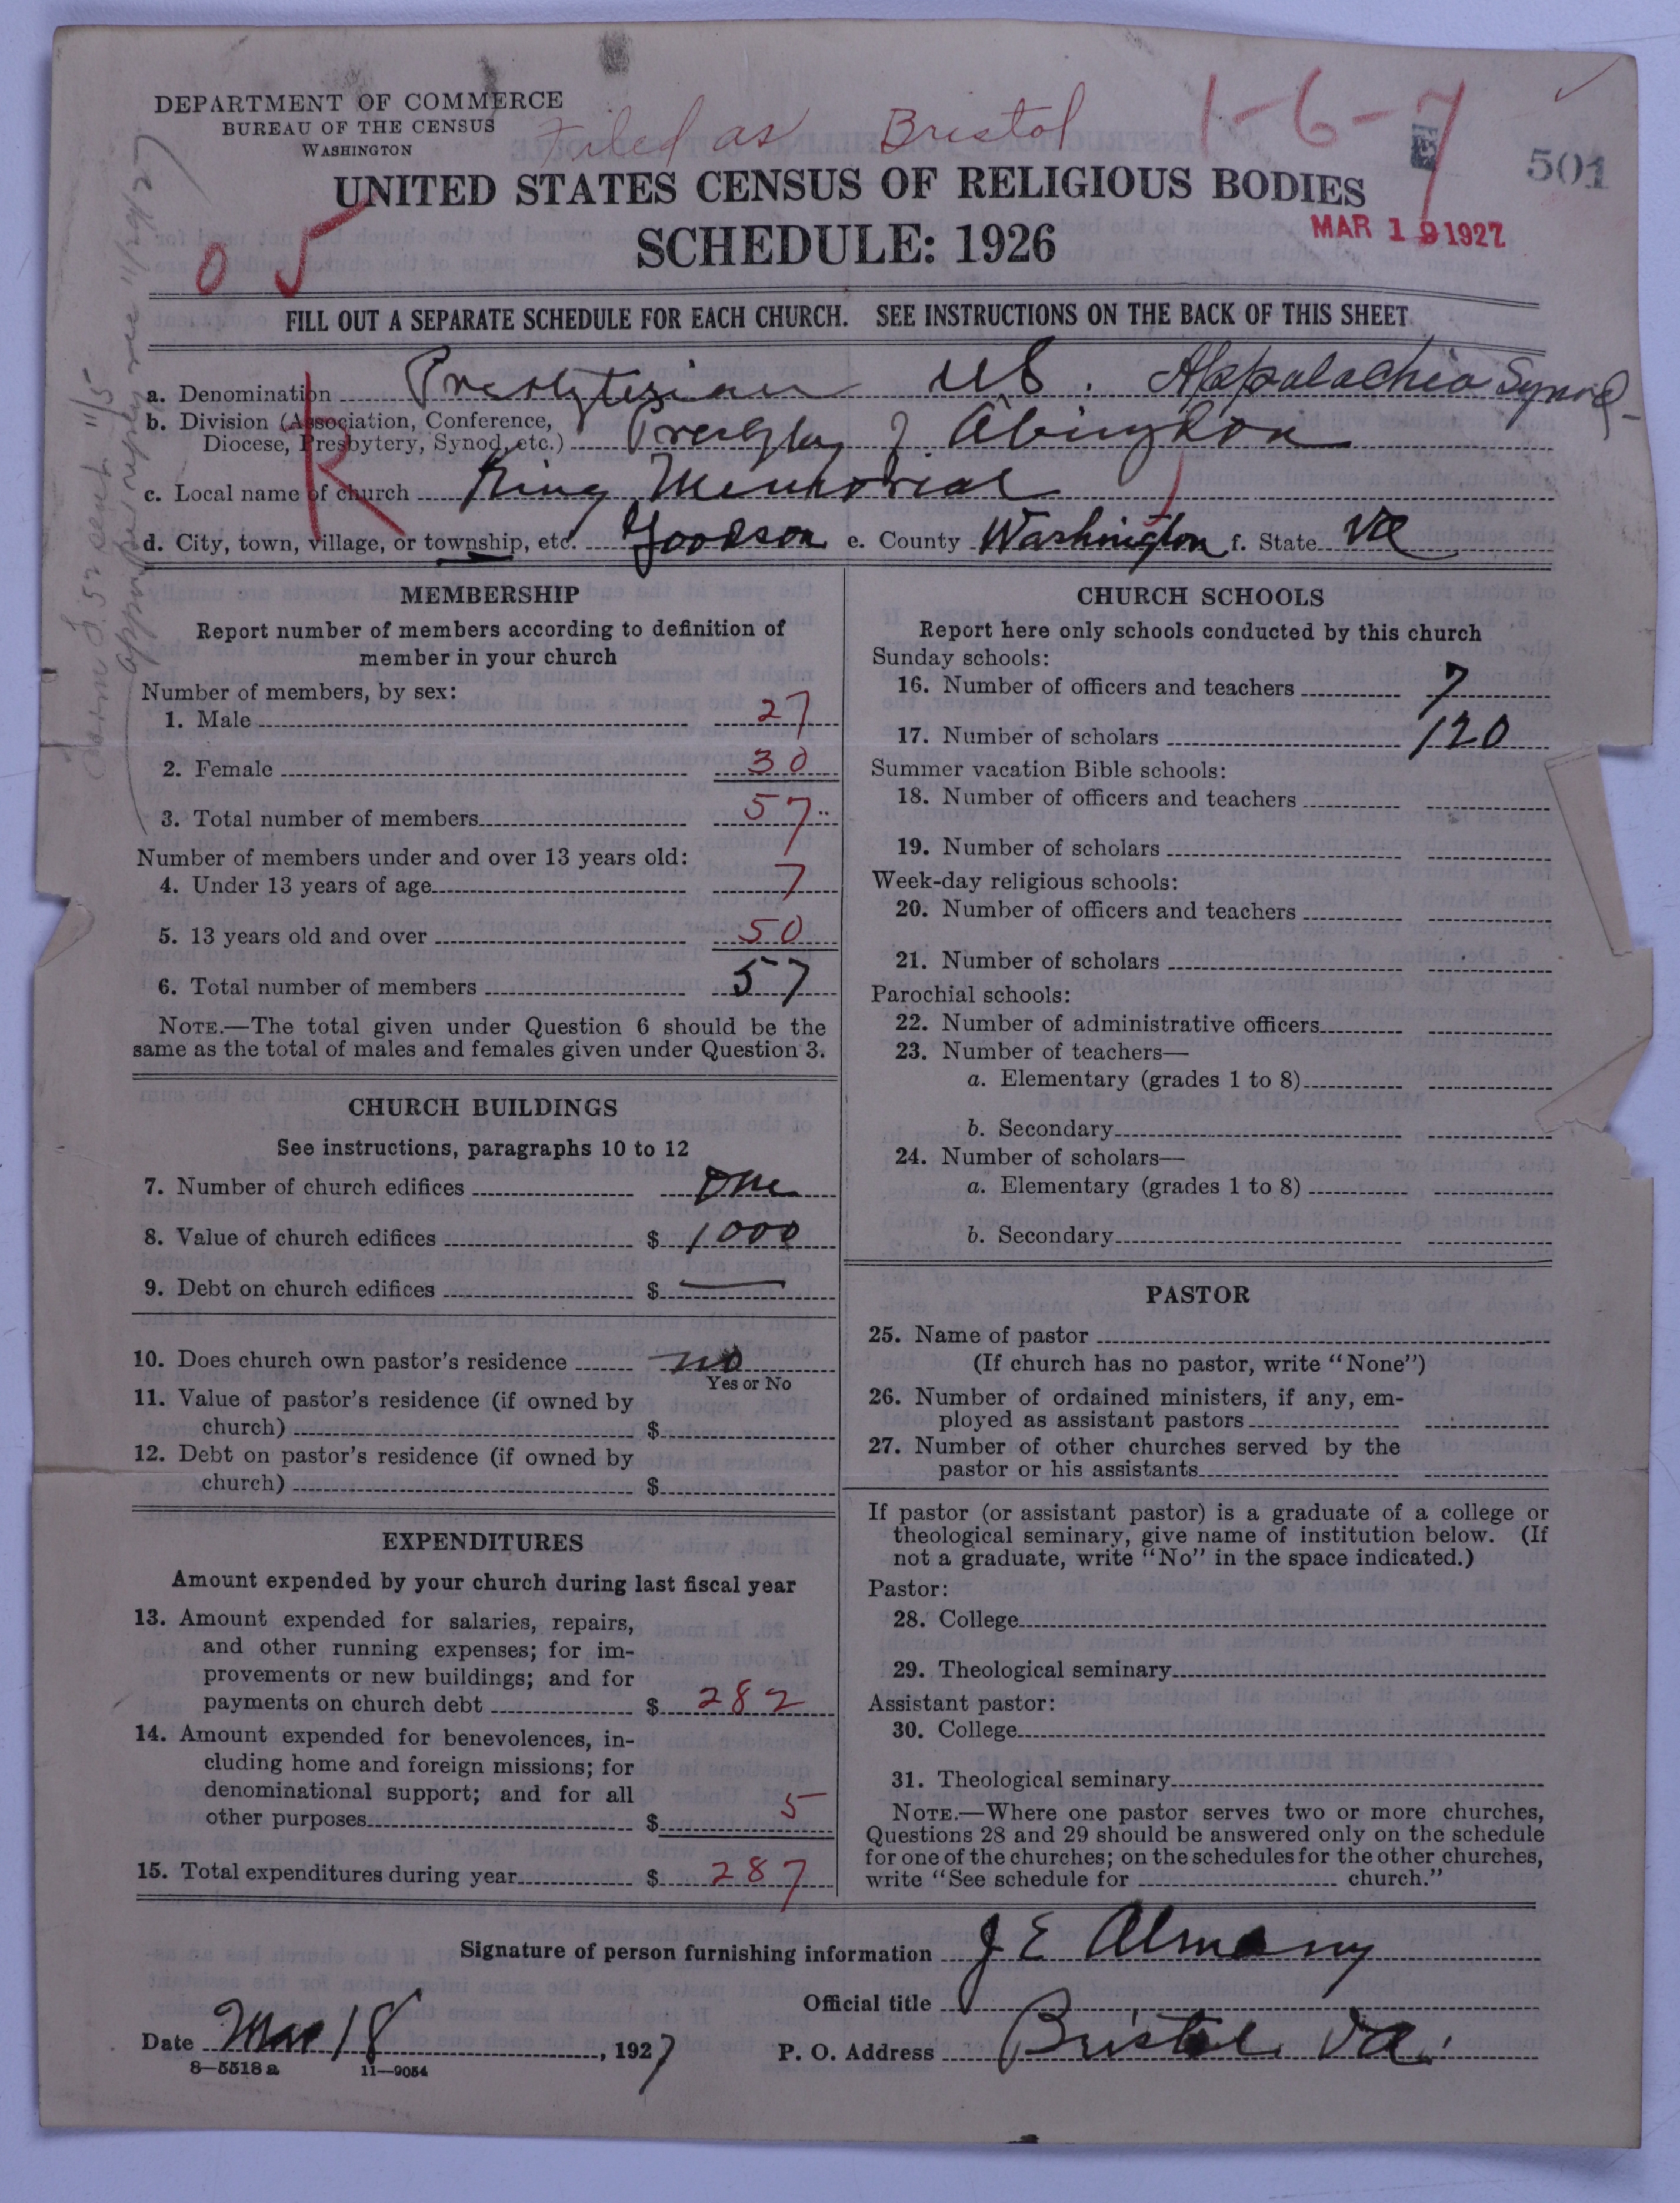 DEPARTMENT OF COMMERCE
BUREAU OF THE CENSUS
WASHINGTON
Filed as Bristol
1-6-7
501
UNITED STATES CENSUS OF RELIGIOUS BODIES
SCHEDULE: 1926
MAR 19 1927
05
FILL OUT A SEPARATE SCHEDULE FOR EACH CHURCH. SEE INSTRUCTIONS ON THE BACK OF THIS SHEET
K
a. Denomination Presbyterian US. Appalachia Synod
b. Division (Association, Conference,
Diocese, Presbytery, Synod, etc.) Presbty of Abingdon
c. Local name of church King Memorial
d. City, town, village, or township, etc. Goodson e. County Washington f. State Va
MEMBERSHIP
Report number of members according to definition of
member in your church
Number of members, by sex:
1. Male 27
2. Female 30
3. Total number of members 57
Number of members under and over 13 years old:
4. Under 13 years of age 7
5. 13 years old and over 50
6. Total number of members 57
NOTE.—The total given under Question 6 should be the
same as the total of males and females given under Question 3.
CHURCH BUILDINGS
See instructions, paragraphs 10 to 12
7. Number of church edifices one
8. Value of church edifices $ 1000
9. Debt on church edifices $ —
10. Does church own pastor's residence no
Yes or No
11. Value of pastor's residence (if owned by
church) $
12. Debt on pastor's residence (if owned by
church) $
EXPENDITURES
Amount expended by your church during last fiscal year
13. Amount expended for salaries, repairs,
and other running expenses; for im-
provements or new buildings; and for
payments on church debt $ 282
14. Amount expended for benevolences, in-
cluding home and foreign missions; for
denominational support; and for all
other purposes $ 5
15. Total expenditures during year $ 287
CHURCH SCHOOLS
Report here only schools conducted by this church
Sunday schools:
16. Number of officers and teachers 7
17. Number of scholars 120
Summer vacation Bible schools:
18. Number of officers and teachers
19. Number of scholars
Week-day religious schools:
20. Number of officers and teachers
21. Number of scholars
Parochial schools:
22. Number of administrative officers
23. Number of teachers—
a. Elementary (grades 1 to 8)
b. Secondary
24. Number of scholars—
a. Elementary (grades 1 to 8)
b. Secondary
PASTOR
25. Name of pastor
(If church has no pastor, write "None")
26. Number of ordained ministers, if any, em-
ployed as assistant pastors
27. Number of other churches served by the
pastor or his assistants
If pastor (or assistant pastor) is a graduate of a college or
theological seminary, give name of institution below. (If
not a graduate, write "No" in the space indicated.)
Pastor:
28. College
29. Theological seminary
Assistant pastor:
30. College
31. Theological seminary
NOTE.—Where one pastor serves two or more churches,
Questions 28 and 29 should be answered only on the schedule
for one of the churches; on the schedules for the other churches,
write "See schedule for church."
Signature of person furnishing information J E Almany
Official title
Date Mar 18, 1927 P. O. Address Bristol Va.
8—5518 a 11—9054